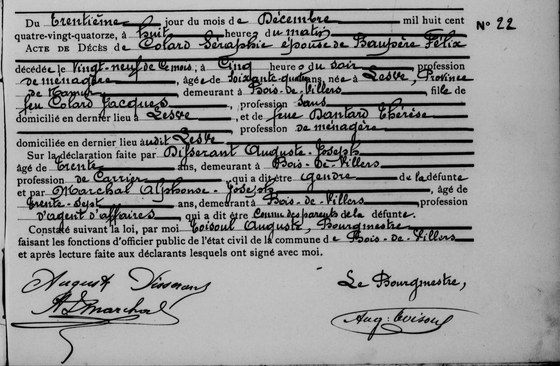 Du trentième jour du mois de Décembre mil huit cent
N° 22
quatre-vingt-quatorze, à huit heures du matin
ACTE DE DÉCÈS de Colard Séraphie épouse de Baupère Félix
décédée le vingt-neuf de ce mois, à Cinq heures du soir profession
de ménagère, âgée de soixante-quatre ans, née à Lesve, Province
de Namur demeurant à Bois-de-Villers fille de
feu Colard Jacques, profession sans
domiciliée en dernier lieu à Lesve, et de feue Dantard Thérèse
profession de ménagère
domiciliée en dernier lieu audit Lesve
Sur la déclaration faite par Auguste-Joseph
âgé de trente ans, demeurant à Bois-de-Villers
profession de Carrier, qui a dit être gendre de la défunte
et par Marchal Alphonse-Joseph, âgé de
trente-sept ans, demeurant à Bois-de-Villers, profession
d'agent d'affaires qui a dit être Connu des parents de la défunte.
Constaté suivant la loi, par moi Toisoul Auguste, Bourgmestre
faisant les fonctions d'officier public de l'état civil de la commune de Bois-de-Villers
et après lecture faite aux déclarants lesquels ont signé avec moi.
August
Le Bourgmestre,
Marchal
Aug. Toisoul